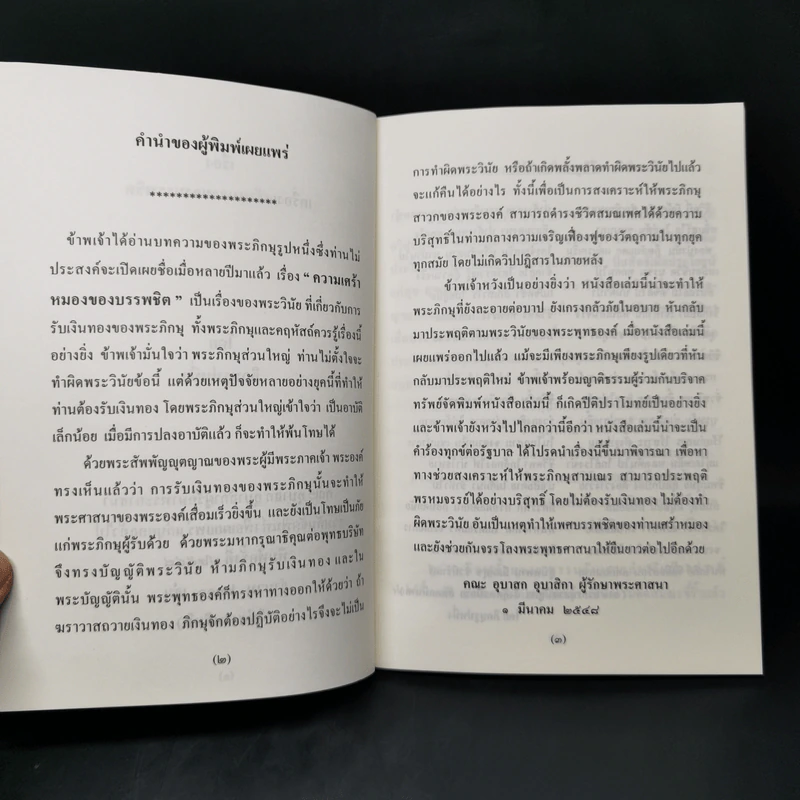 คำนำของผู้พิมพ์เผยแพร่
********************
ข้าพเจ้าได้อ่านบทความของพระภิกษุรูปหนึ่งซึ่งท่านไม่
ประสงค์จะเปิดเผยชื่อเมื่อหลายปีมาแล้ว เรื่อง “ ความเศร้า
หมองของบรรพชิต ” เป็นเรื่องของพระวินัย ที่เกี่ยวกับการ
รับเงินทองของพระภิกษุ ทั้งพระภิกษุและคฤหัสถ์ควรรู้เรื่องนี้
อย่างยิ่ง ข้าพเจ้ามั่นใจว่า พระภิกษุส่วนใหญ่ ท่านไม่ตั้งใจจะ
ทำผิดพระวินัยข้อนี้ แต่ด้วยเหตุปัจจัยหลายอย่างยุคนี้ที่ทำให้
ท่านต้องรับเงินทอง โดยพระภิกษุส่วนใหญ่เข้าใจว่า เป็นอาบัติ
เล็กน้อย เมื่อมีการปลงอาบัติแล้ว ก็จะทำให้พ้นโทษได้
ด้วยพระสัพพัญญุตญาณของพระผู้มีพระภาคเจ้า พระองค์
ทรงเห็นแล้วว่า การรับเงินทองของพระภิกษุนั้นจะทำให้
พระศาสนาของพระองค์เสื่อมเร็วยิ่งขึ้น และยังเป็นโทษเป็นภัย
แก่พระภิกษุผู้รับด้วย ด้วยพระมหากรุณาธิคุณต่อพุทธบริษัท
จึงทรงบัญญัติพระวินัย ห้ามภิกษุรับเงินทอง และใน
พระบัญญัตินั้น พระพุทธองค์ก็ทรงหาทางออกให้ด้วยว่า ถ้า
ฆราวาสถวายเงินทอง ภิกษุจักต้องปฏิบัติอย่างไรจึงจะไม่เป็น
(๒)
การทำผิดพระวินัย หรือถ้าเกิดพลั้งพลาดทำผิดพระวินัยไปแล้ว
จะแก้คืนได้อย่างไร ทั้งนี้เพื่อเป็นการสงเคราะห์ให้พระภิกษุ
สาวกของพระองค์ สามารถดำรงชีวิตสมณเพศได้ด้วยความ
บริสุทธิ์ในท่ามกลางความเจริญเฟื่องฟูของวัตถุกามในทุกยุค
ทุกสมัย โดยไม่เกิดวิปฏิสารในภายหลัง
ข้าพเจ้าหวังเป็นอย่างยิ่งว่า หนังสือเล่มนี้น่าจะทำให้
พระภิกษุที่ยังละอายต่อบาป ยังเกรงกลัวภัยในอบาย หันกลับ
มาประพฤติตามพระวินัยของพระพุทธองค์ เมื่อหนังสือเล่มนี้
เผยแพร่ออกไปแล้ว แม้จะมีเพียงพระภิกษุเพียงรูปเดียวที่หัน
กลับมาประพฤติใหม่ ข้าพเจ้าพร้อมญาติธรรมผู้ร่วมกันบริจาค
ทรัพย์จัดพิมพ์หนังสือเล่มนี้ ก็เกิดปีติปราโมทย์เป็นอย่างยิ่ง
และข้าพเจ้ายังหวังไปไกลกว่านี้อีกว่า หนังสือเล่มนี้น่าจะเป็น
คำร้องทุกข์ต่อรัฐบาล ได้โปรดนำเรื่องนี้ขึ้นมาพิจารณา เพื่อหา
ทางช่วยสงเคราะห์ให้พระภิกษุสามเณร สามารถประพฤติ
พรหมจรรย์ได้อย่างบริสุทธิ์ โดยไม่ต้องรับเงินทอง ไม่ต้องทำ
ผิดพระวินัย อันเป็นเหตุทำให้เพศบรรพชิตของท่านเศร้าหมอง
และยังช่วยกันจรรโลงพระพุทธศาสนาให้ยืนยาวต่อไปอีกด้วย
คณะ อุบาสก อุบาสิกา ผู้รักษาพระศาสนา
๑ มีนาคม ๒๕๔๘
(๓)